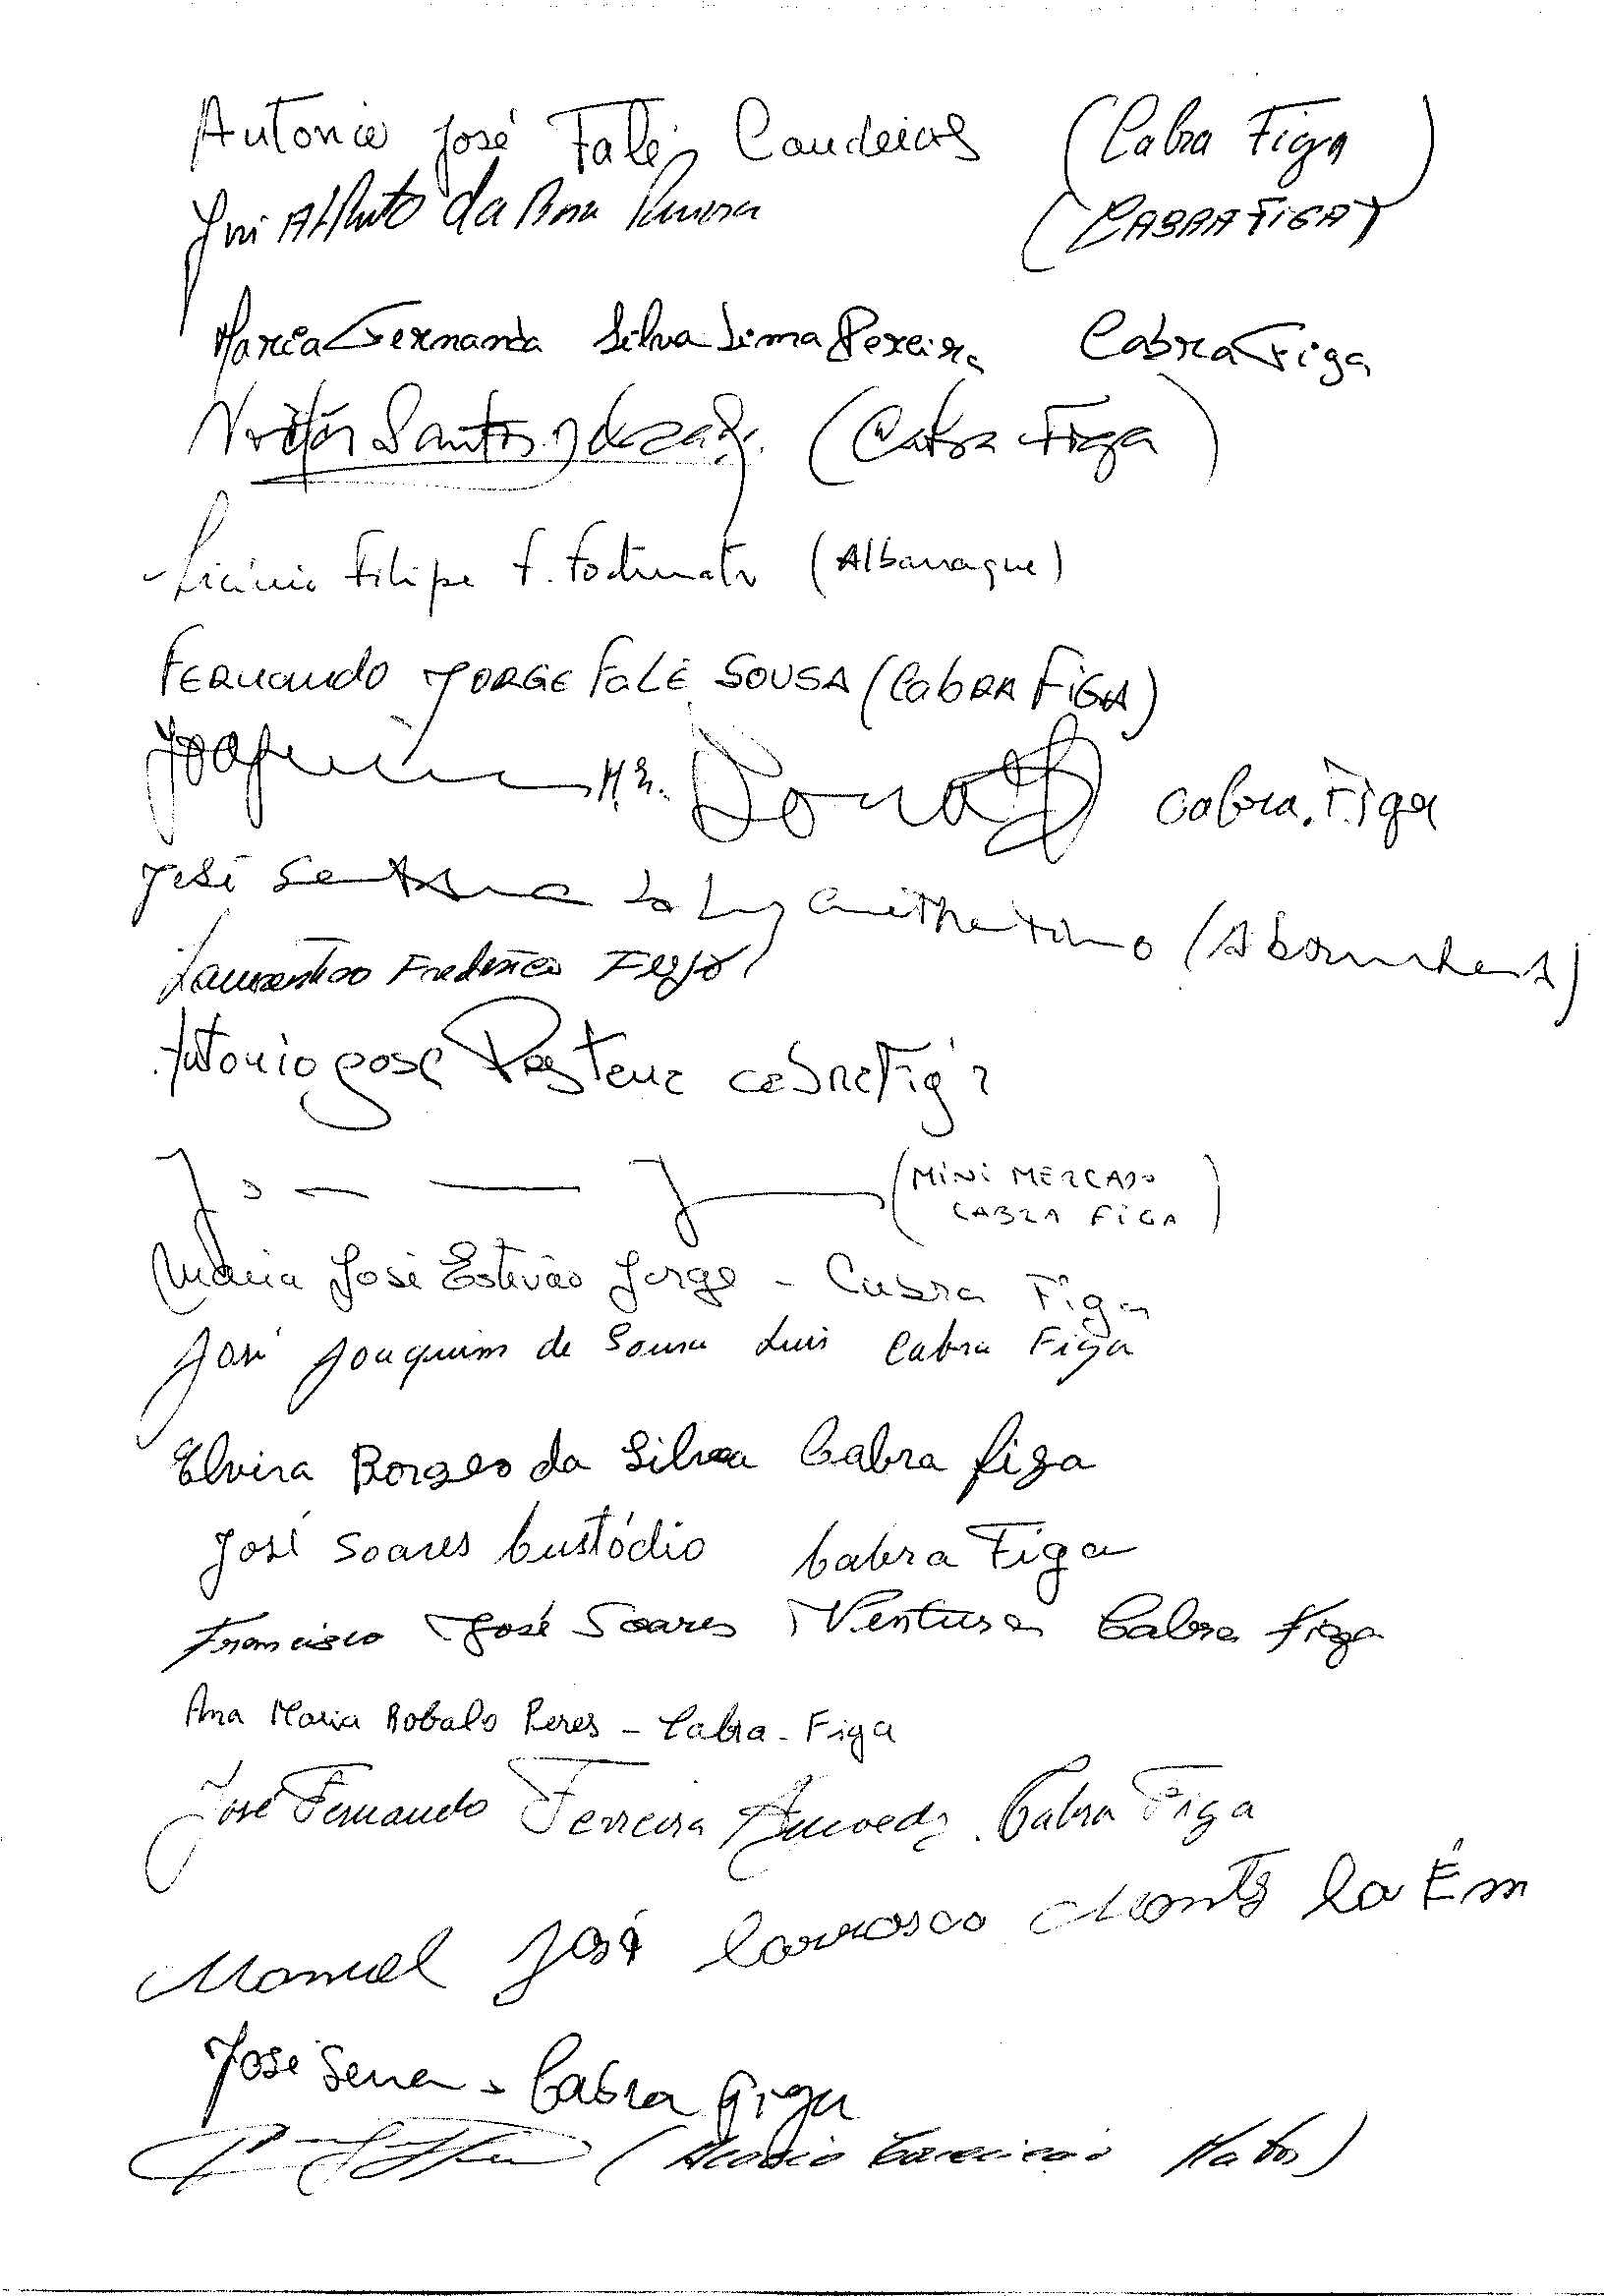 Antonio José Falé Candeias (Cabra Figa)
José Alberto da Rosa (CABRA FIGA)
Maria Fernanda Silva Lima Pereira Cabra Figa
Santos (Cabra Figa)
Licínio Filipe F. Fortunato (Albarraque)
FERNANDO JORGE FALÉ SOUSA (CABRA FIGA)
Joaquim Cabra. Figa
José (Abrunheira)
Laurentino Frederico Feijó
Antonio José Cabra Figa
(MINI MERCADO
CABRA FIGA)
Maria José Estevão Jorge - Cabra Figa
José Joaquim de Sousa Luis Cabra Figa
Elvira Borges da Silva Cabra figa
José Soares Custódio Cabra Figa
Francisco José Soares Ventura Cabra Figa
Ana Maria Robalo Peres - Cabra - Figa
José Fernando Ferreira Cabra Figa
Manuel José Carrasco
José Sena - Cabra Figa
(Acácio Matos)